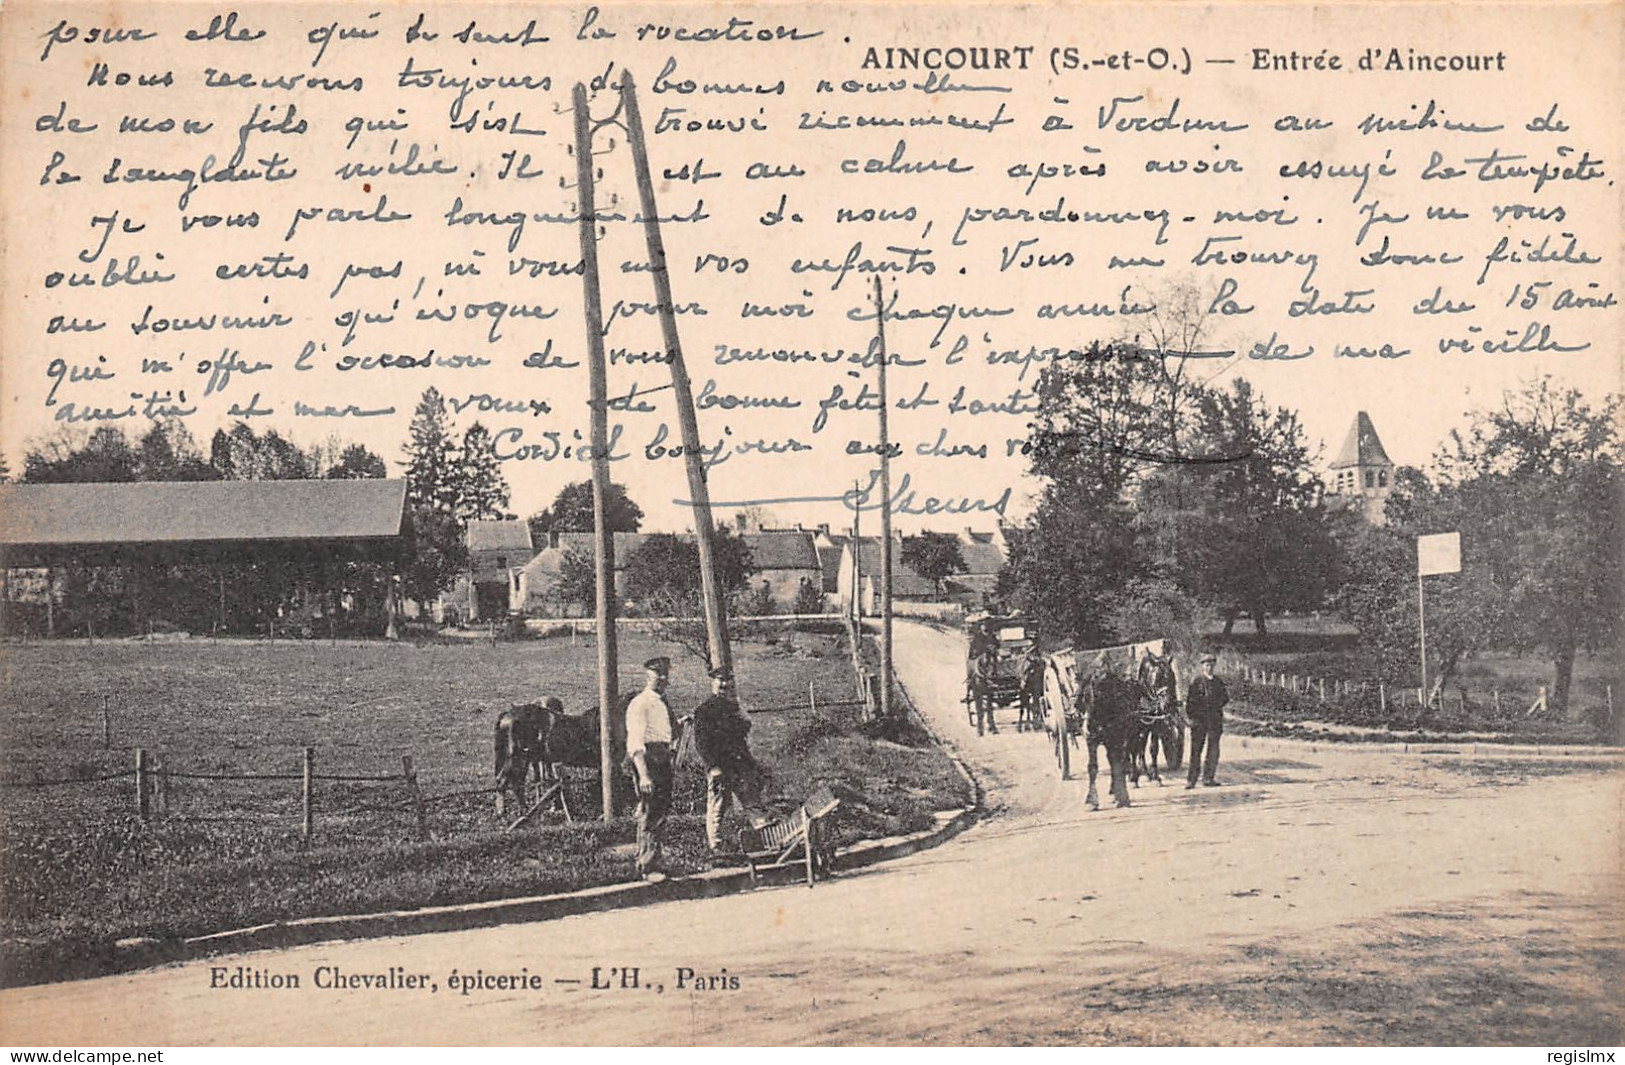 pour elle qui se sent la vocation.
AINCOURT (S.-et-O.) — Entrée d'Aincourt
Nous recevons toujours de bonnes nouvelles
de mon fils qui s'est trouvé récemment à Verdun au milieu de
la sanglante mêlée. Il est au calme après avoir essuyé la tempête.
Je vous parle longuement de nous, pardonnez-moi. Je ne vous
oublie certes pas, ni vous ni vos enfants. Vous me trouvez donc fidèle
au souvenir qu'évoque pour moi chaque année la date du 15 Août
qui m'offre l'occasion de vous renouveler l'expression de ma vieille
amitié et mes vœux de bonne fête et santé
Cordial bonjour aux chers vôtres
Edition Chevalier, épicerie — L'H., Paris
www.delcampe.net
regislmx